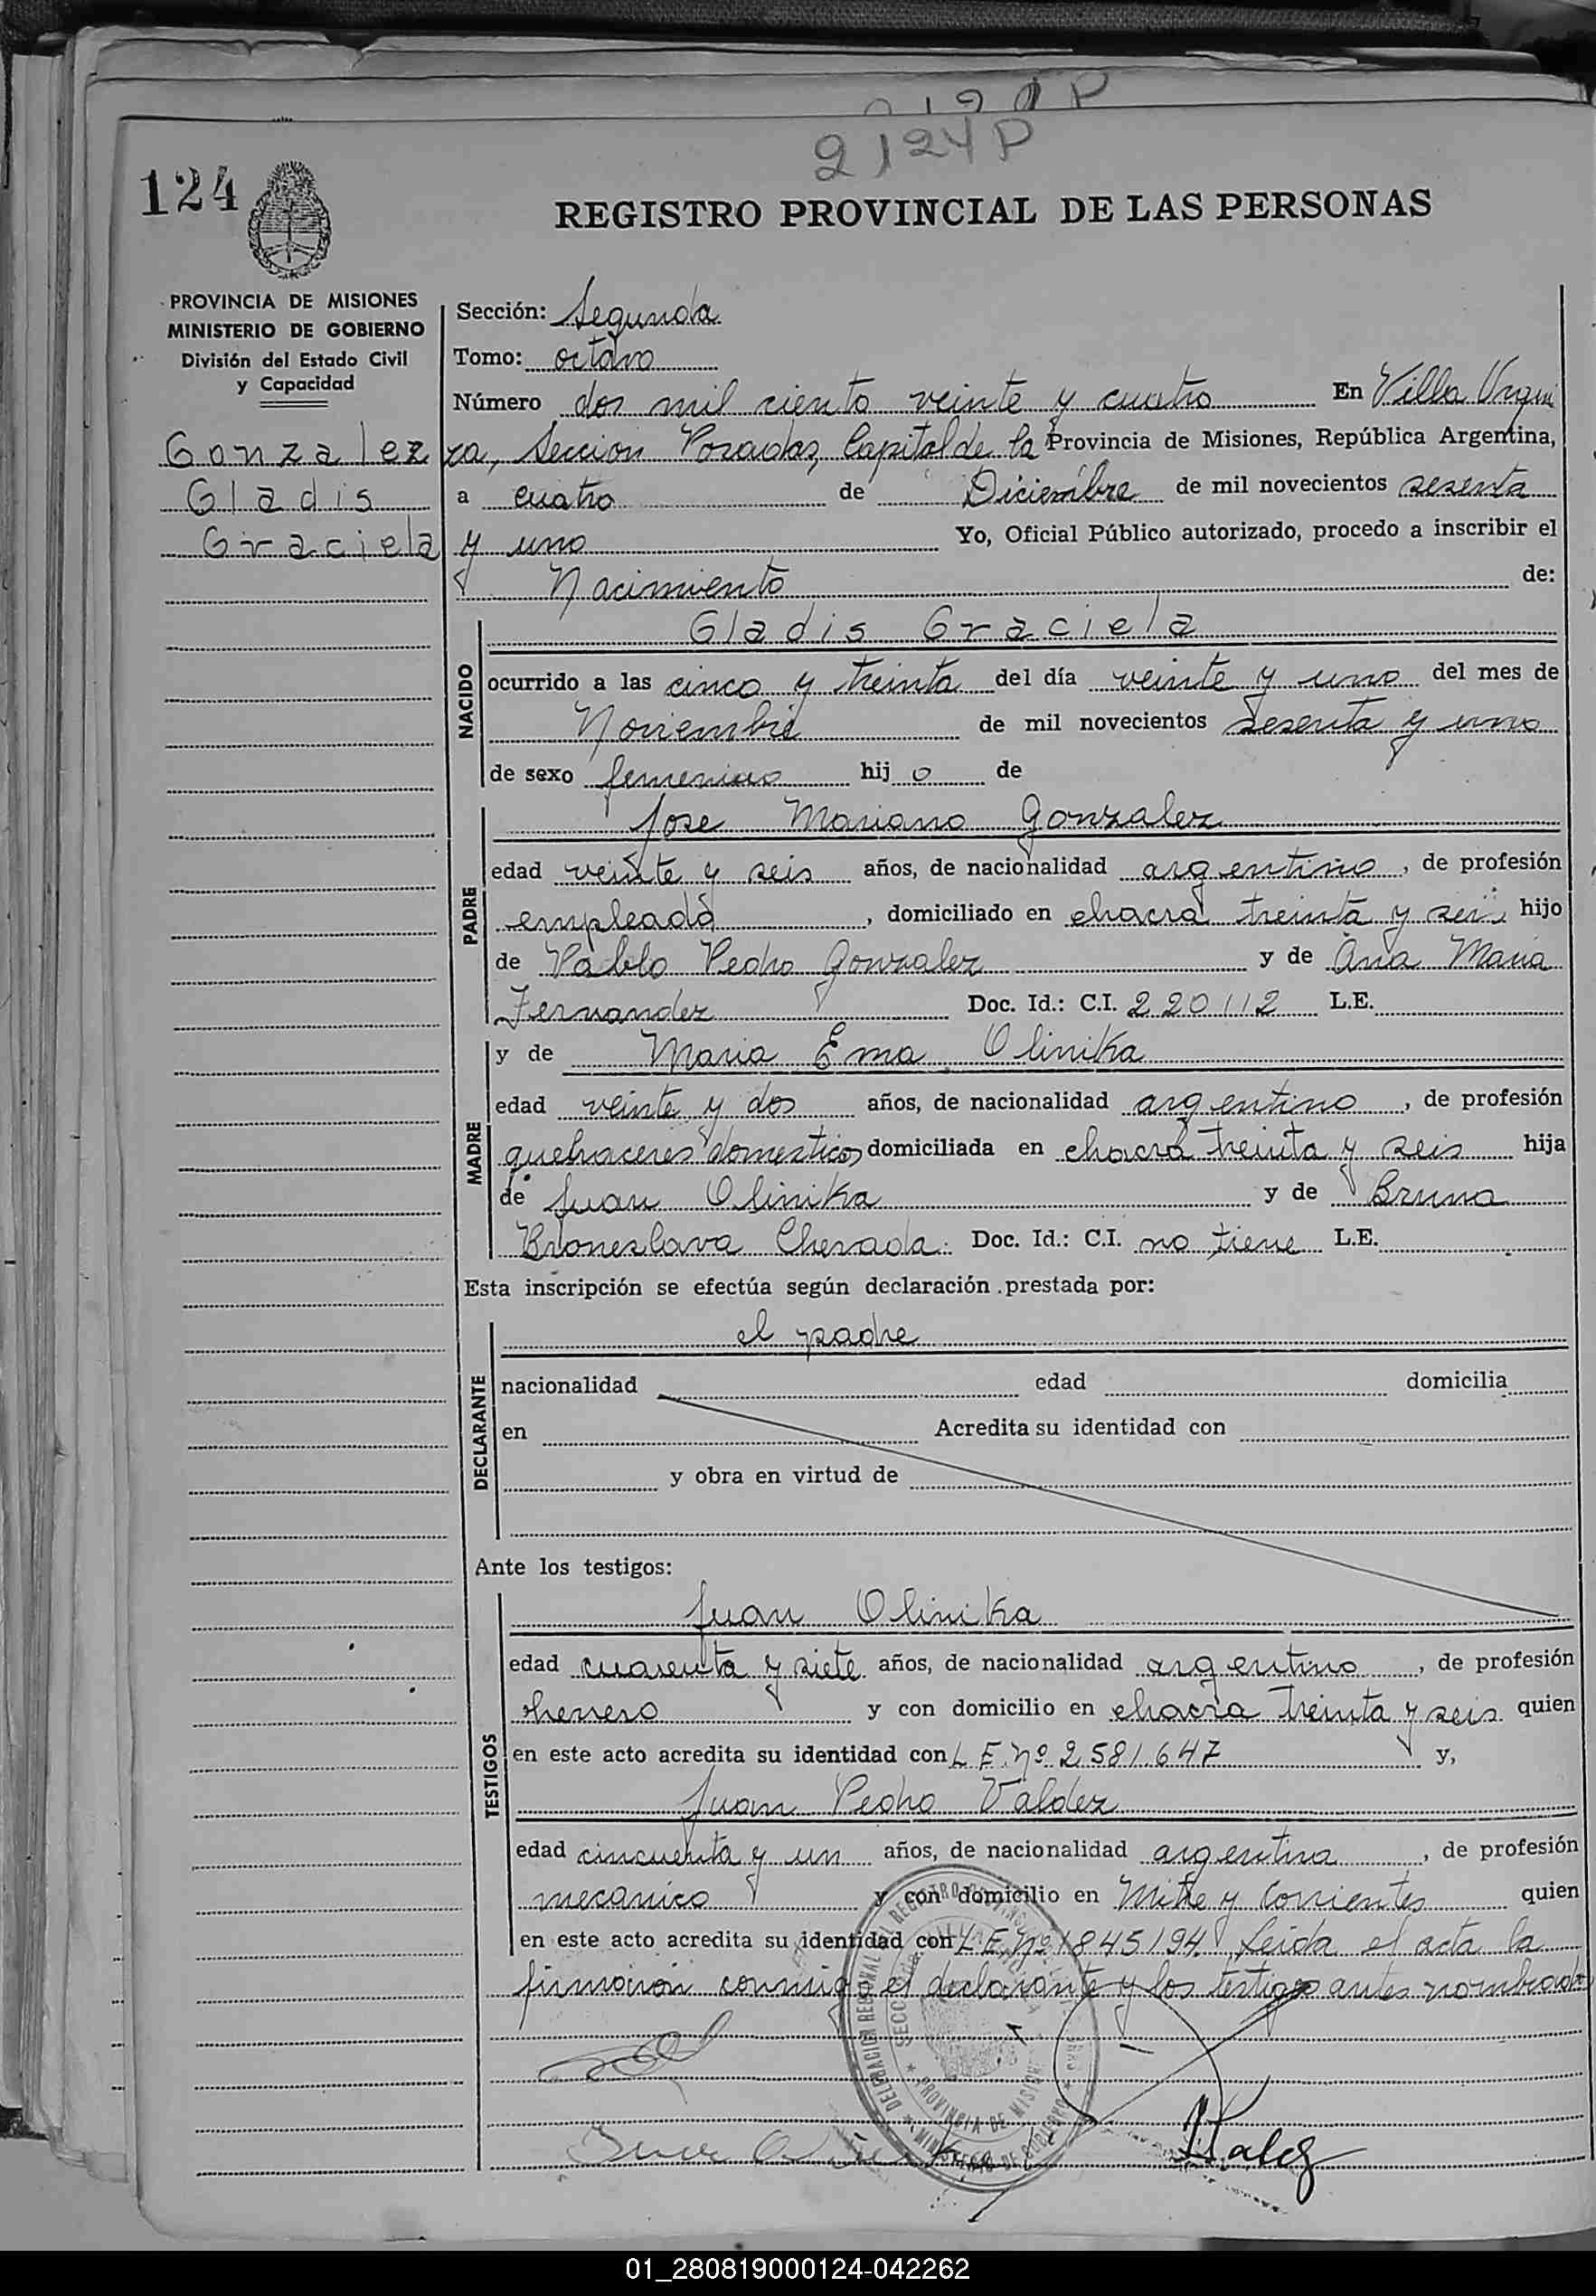 2124P
124
REGISTRO PROVINCIAL DE LAS PERSONAS
PROVINCIA DE MISIONES
MINISTERIO DE GOBIERNO
División del Estado Civil
y Capacidad
Gonzalez
Gladis
Graciela
Sección: Segunda
Tomo: octavo
Número dos mil ciento veinte y cuatro En Villa Urqui
za, Sección Posadas, Capital de la Provincia de Misiones, República Argentina,
a cuatro de Diciembre de mil novecientos sesenta
y uno Yo, Oficial Público autorizado, procedo a inscribir el
Nacimiento de:
NACIDO
Gladis Graciela
ocurrido a las cinco y treinta del día veinte y uno del mes de
Noviembre de mil novecientos sesenta y uno
de sexo femenino hijo de
PADRE
Jose Mariano Gonzalez
edad veinte y seis años, de nacionalidad argentino, de profesión
empleado, domiciliado en chacra treinta y seis hijo
de Pablo Pedro Gonzalez y de Ana Maria
Fernandez Doc. Id.: C.I. 220112 L.E.
MADRE
y de Maria Ema Olinika
edad veinte y dos años, de nacionalidad argentino, de profesión
quehaceres domesticos domiciliada en chacra treinta y seis hija
de Juan Olinika y de Bruna
Broneslava Cherada. Doc. Id.: C.I. no tiene L.E.
Esta inscripción se efectúa según declaración prestada por:
DECLARANTE
el padre
nacionalidad edad domicilia
en Acredita su identidad con
y obra en virtud de
Ante los testigos:
TESTIGOS
Juan Olinika
edad cuarenta y siete años, de nacionalidad argentino, de profesión
herrero y con domicilio en chacra treinta y seis quien
en este acto acredita su identidad con L.E. Nº 2.581.647 y,
Juan Pedro Valdez
edad cincuenta y un años, de nacionalidad argentina, de profesión
mecanico y con domicilio en Mitre y Corrientes quien
en este acto acredita su identidad con L.E. Nº 1845194. Leida el acta la
firmaron conmigo el declarante y los testigos antes nombrados
PROVINCIA DE MISIONES
01_280819000124-042262